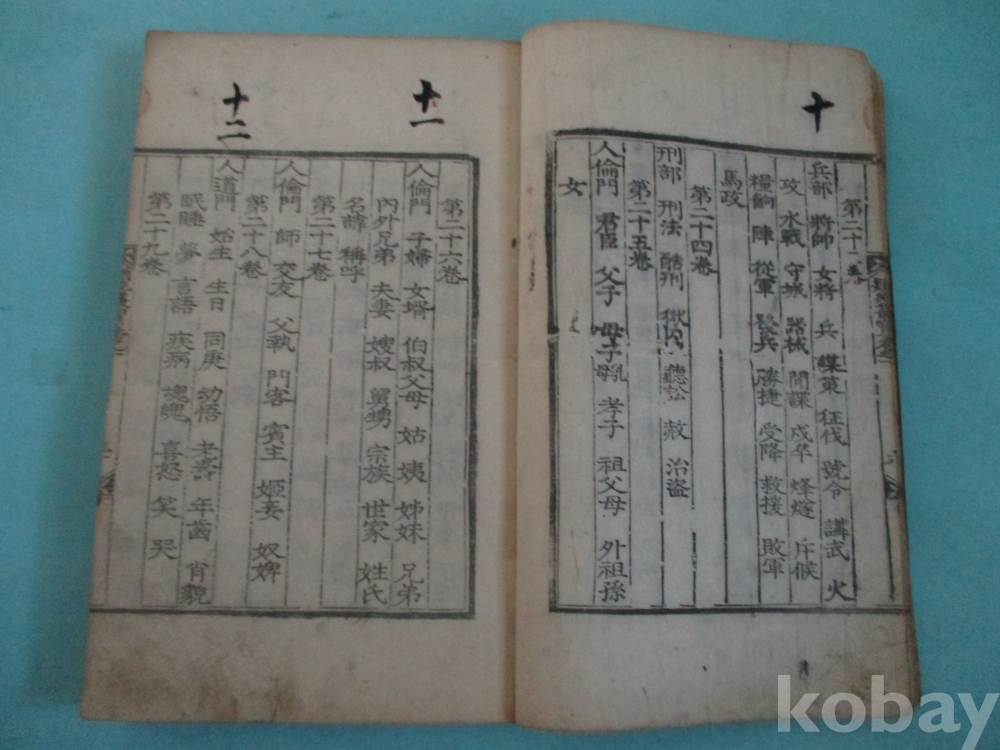 十
兵部 將帥 女將 兵 謀策 征伐 號令 講武 火
攻 水戰 守城 器械 間諜 戍卒 烽燧 斥候
糧餉 陣 從軍 發兵 勝捷 受降 救援 敗軍
馬政
第二十四卷
刑部 刑法 酷刑 獄囚 聽訟 赦 治盜
第二十五卷
人倫門 君臣 父子 母子 乳母 孝子 祖父母 外祖孫
女
十一
第二十六卷
人倫門 子婦 女壻 伯叔父母 姑 姨 姊妹 兄弟
內外兄弟 夫妻 嫂叔 舅甥 宗族 世家 姓氏
名諱 稱呼
第二十七卷
人倫門 師 交友 父執 門客 賓主 姬妾 奴婢
第二十八卷
十二
人道門 始生 生日 同庚 幼悟 老壽 年齒 肖貌
眠睡 夢 言語 疾病 魂魄 喜怒 笑 哭
第二十九卷
kobay